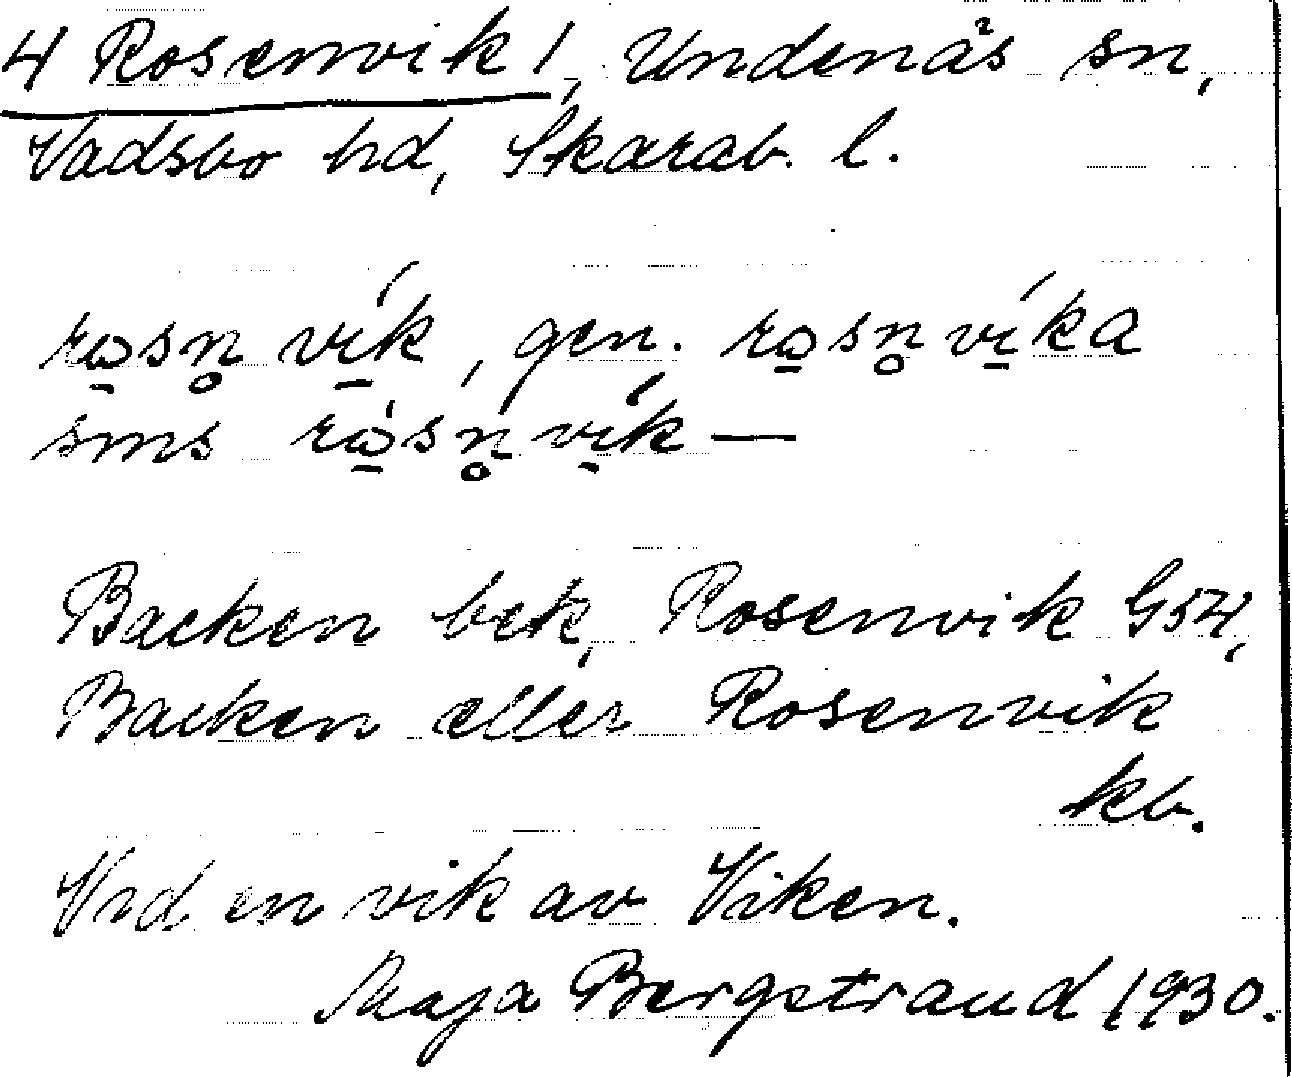 4 Rosenvik 1, Undenäs sn,
Vadsbo hd, Skarab. l.
rω̱sn̥ ví̱k, gen. rω̱sn̥ ví̱ka
sms rὼ̱sn̥vi̱k—
Backen bek, Rosenvik G54,
Backen eller Rosenvik
kb.
Vid en vik av Viken.
Maja Bergstrand 1930.